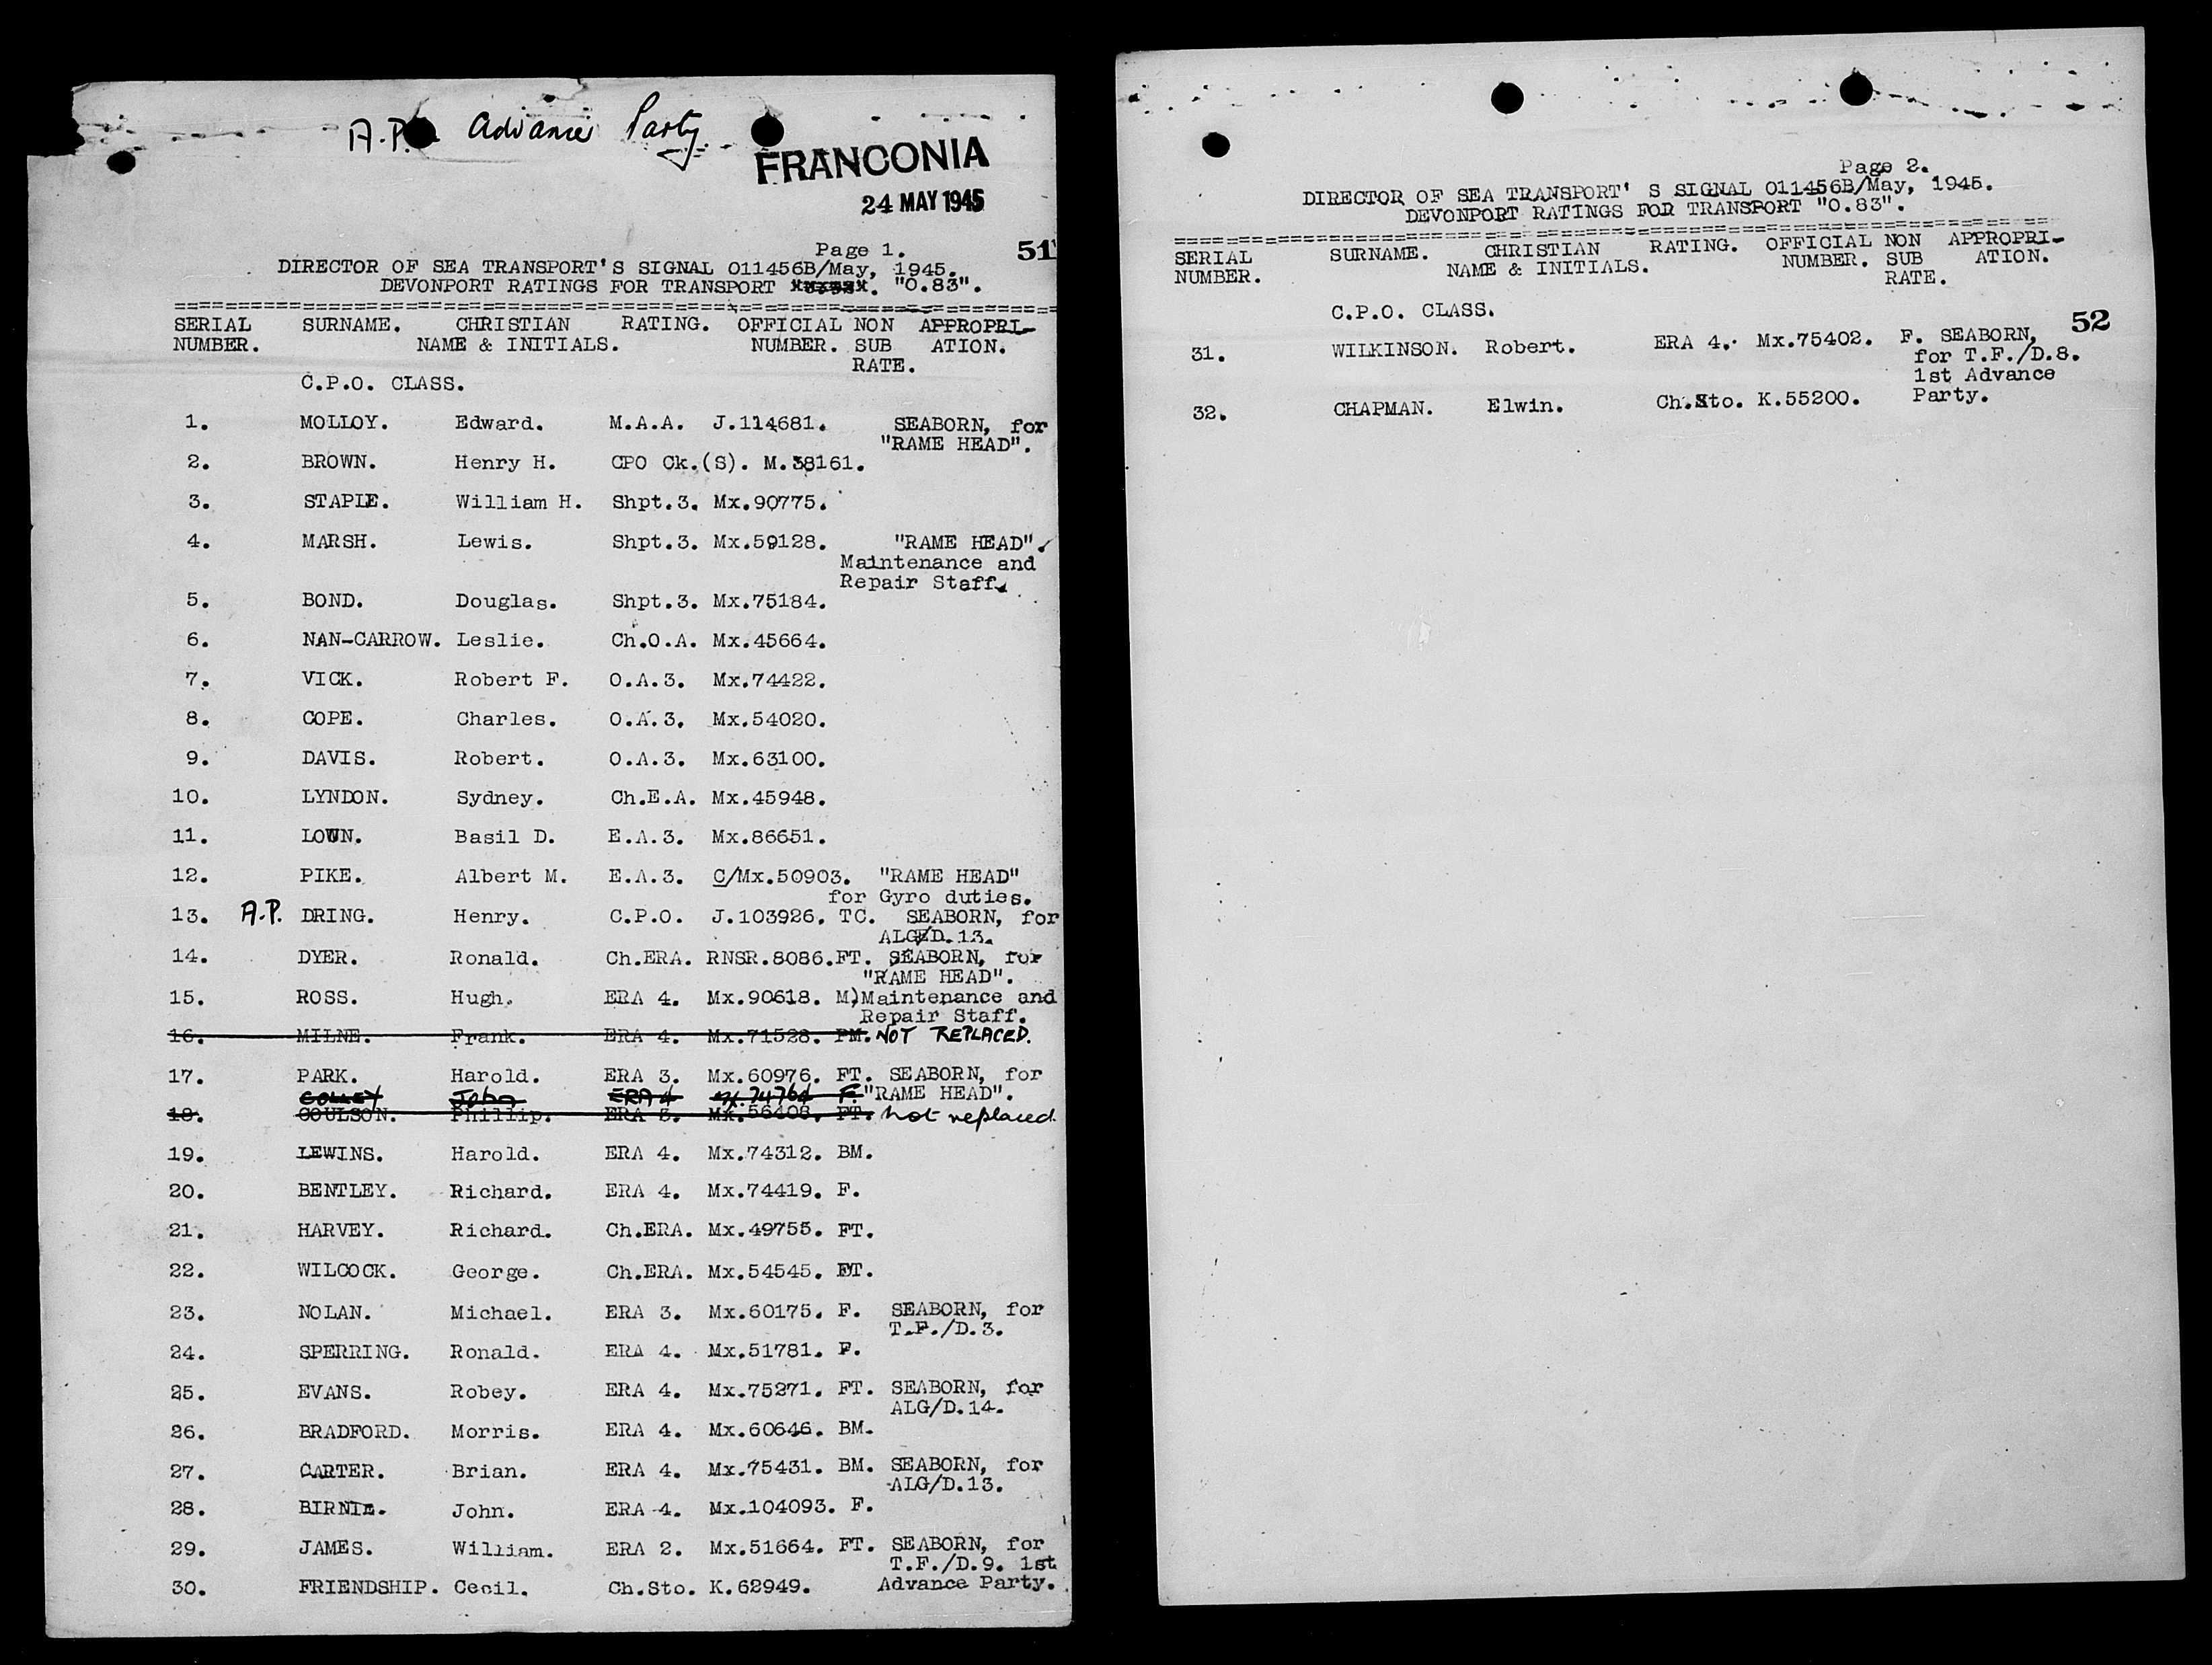 A.P. Advance Party
FRANCONIA
24 MAY 1945
Page 1. 51
DIRECTOR OF SEA TRANSPORT'S SIGNAL 011456B/May, 1945.
DEVONPORT RATINGS FOR TRANSPORT "0.83".
SERIAL SURNAME. CHRISTIAN RATING. OFFICIAL NON APPROPRI-
NUMBER. NAME & INITIALS. NUMBER. SUB ATION.
RATE.
C.P.O. CLASS.
1. MOLLOY. Edward. M.A.A. J.114681. SEABORN, for
"RAME HEAD".
2. BROWN. Henry H. CPO Ck.(S). M.38161.
3. STAPLE. William H. Shpt.3. Mx.90775.
4. MARSH. Lewis. Shpt.3. Mx.59128. "RAME HEAD".
Maintenance and
Repair Staff.
5. BOND. Douglas. Shpt.3. Mx.75184.
6. NAN-CARROW. Leslie. Ch.O.A. Mx.45664.
7. VICK. Robert F. O.A.3. Mx.74422.
8. COPE. Charles. O.A.3. Mx.54020.
9. DAVIS. Robert. O.A.3. Mx.63100.
10. LYNDON. Sydney. Ch.E.A. Mx.45948.
11. LOWN. Basil D. E.A.3. Mx.86651.
12. PIKE. Albert M. E.A.3. C/Mx.50903. "RAME HEAD"
for Gyro duties.
13. A.P. DRING. Henry. C.P.O. J.103926. TC. SEABORN, for
ALG/D.13.
14. DYER. Ronald. Ch.ERA. RNSR.8086.FT. SEABORN, for
"RAME HEAD".
15. ROSS. Hugh. ERA 4. Mx.90618. M)Maintenance and
Repair Staff.
16. MILNE. Frank. ERA 4. Mx.71528. FM. NOT REPLACED.
17. PARK. Harold. ERA 3. Mx.60976. FT. SEABORN, for
COLLEY John ERA 4 Mx.74764 F. "RAME HEAD".
18. COULSON. Phillip. ERA 3. Mx.56408. FT. Not replaced
19. LEWINS. Harold. ERA 4. Mx.74312. BM.
20. BENTLEY. Richard. ERA 4. Mx.74419. F.
21. HARVEY. Richard. Ch.ERA. Mx.49755. FT.
22. WILCOCK. George. Ch.ERA. Mx.54545. FT.
23. NOLAN. Michael. ERA 3. Mx.60175. F. SEABORN, for
T.F./D.3.
24. SPERRING. Ronald. ERA 4. Mx.51781. F.
25. EVANS. Robey. ERA 4. Mx.75271. FT. SEABORN, for
ALG/D.14.
26. BRADFORD. Morris. ERA 4. Mx.60646. BM.
27. CARTER. Brian. ERA 4. Mx.75431. BM. SEABORN, for
ALG/D.13.
28. BIRNIE. John. ERA 4. Mx.104093. F.
29. JAMES. William. ERA 2. Mx.51664. FT. SEABORN, for
T.F./D.9. 1st
30. FRIENDSHIP. Cecil. Ch.Sto. K.62949. Advance Party.
Page 2.
DIRECTOR OF SEA TRANSPORT' S SIGNAL 011456B/May, 1945.
DEVONPORT RATINGS FOR TRANSPORT "0.83".
SERIAL SURNAME. CHRISTIAN RATING. OFFICIAL NON APPROPRI-
NUMBER. NAME & INITIALS. NUMBER. SUB ATION.
RATE.
C.P.O. CLASS. 52
31. WILKINSON. Robert. ERA 4. Mx.75402. F. SEABORN,
for T.F./D.8.
1st Advance
32. CHAPMAN. Elwin. Ch.Sto. K.55200. Party.